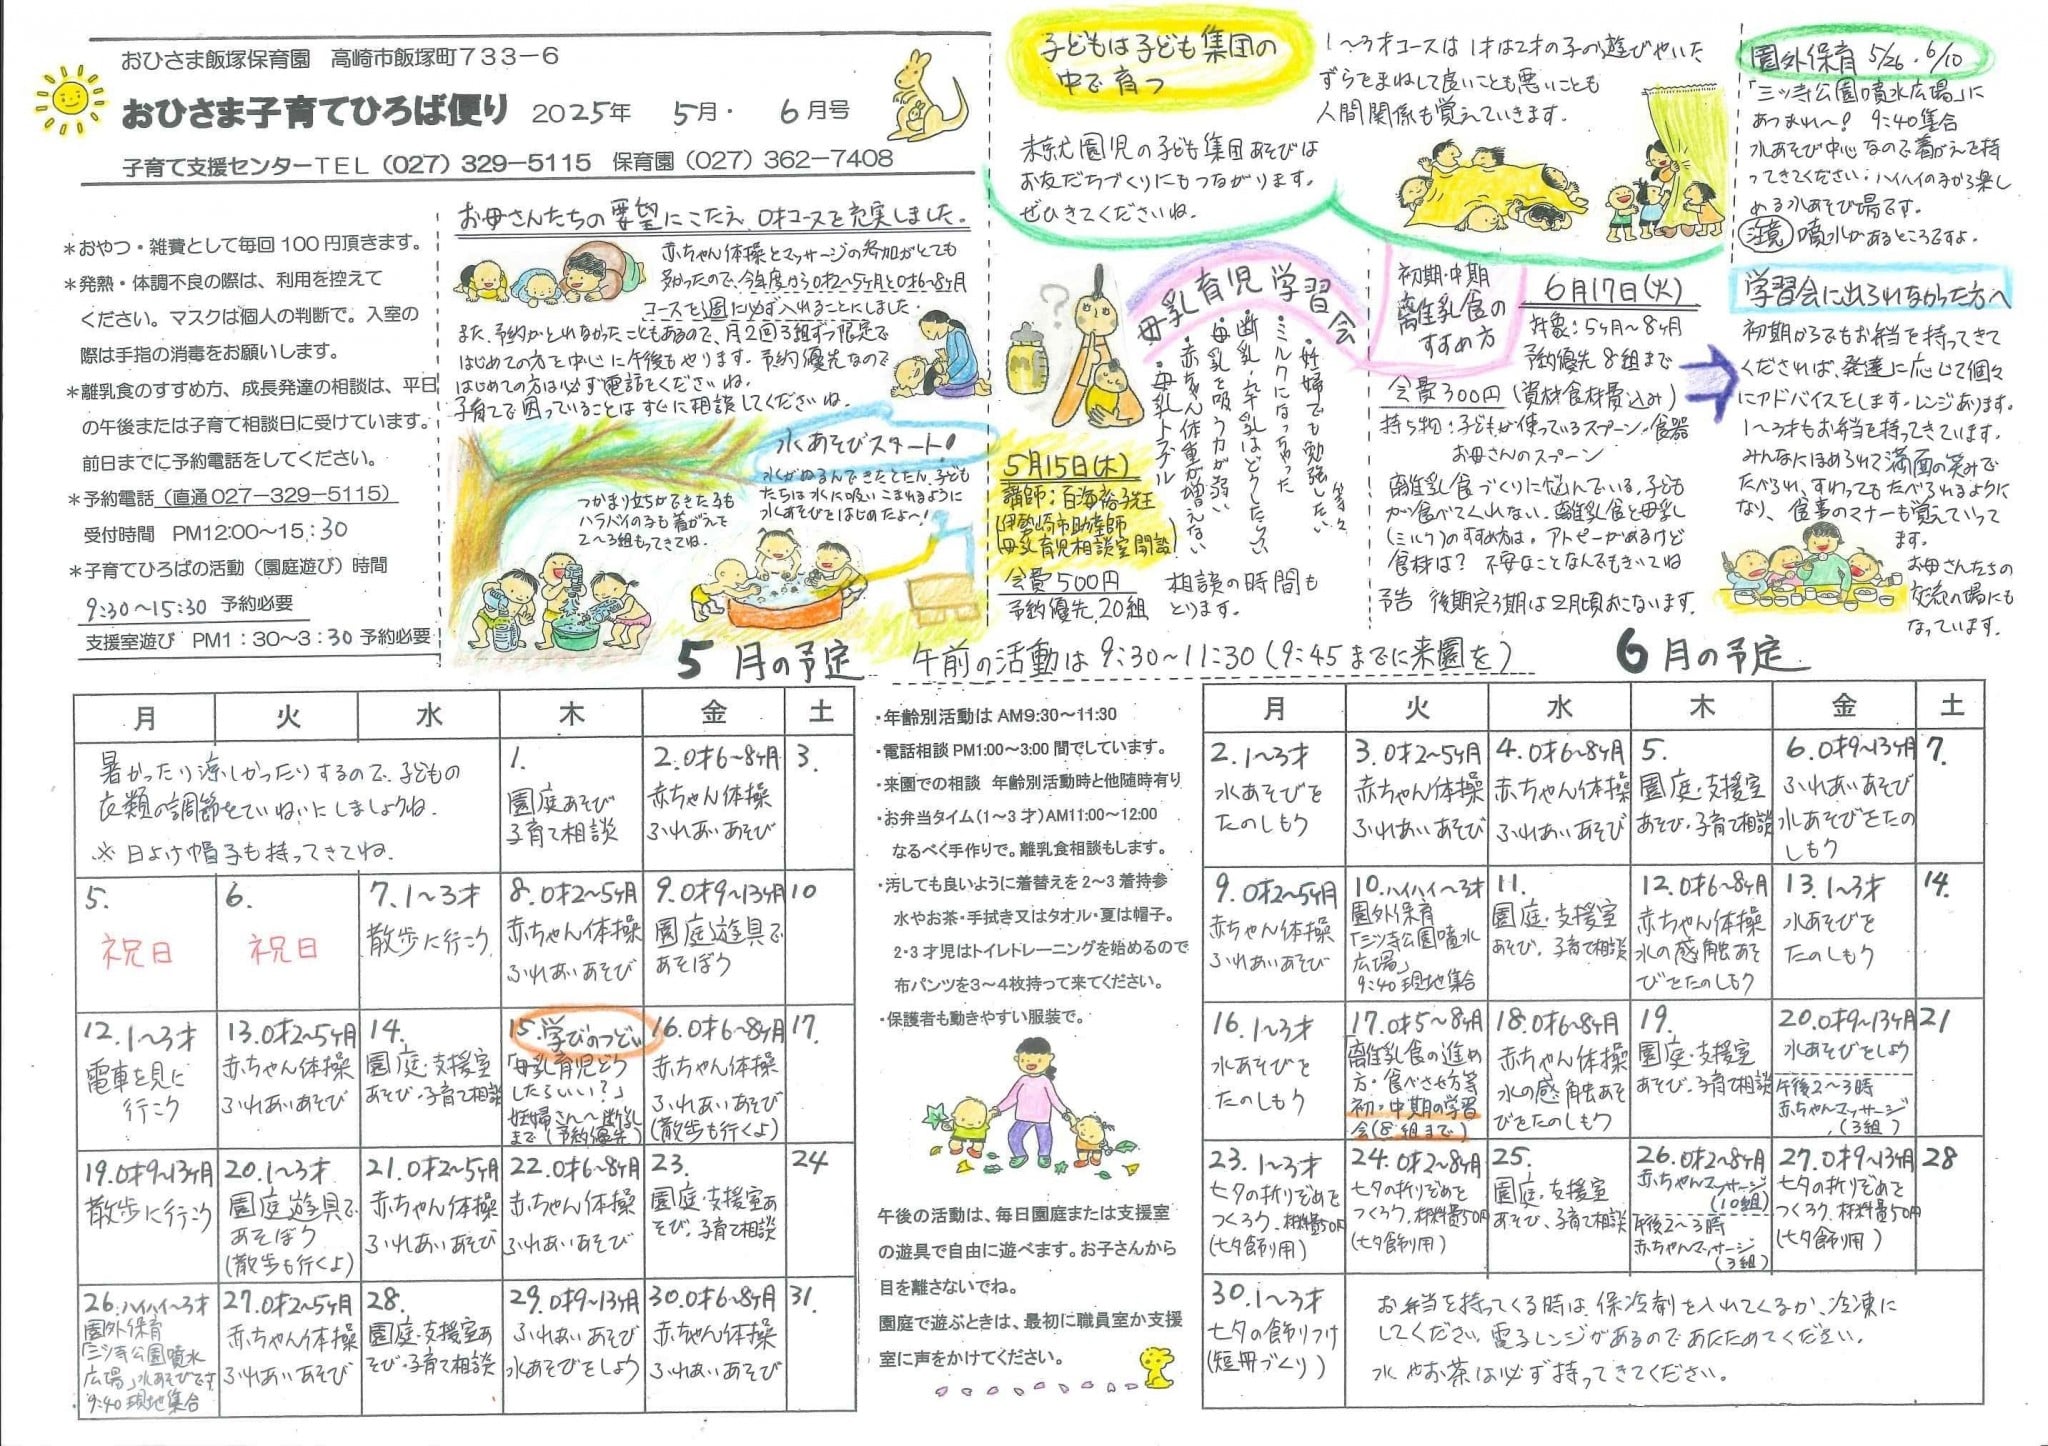 おひさま飯塚保育園　高崎市飯塚町７３３－６
おひさま子育てひろば便り　2025年　5月・　6月号
子育て支援センターＴＥＬ（027）329－5115　保育園（027）362－7408
＊おやつ・雑費として毎回100円頂きます。
＊発熱・体調不良の際は、利用を控えて
ください。マスクは個人の判断で。入室の
際は手指の消毒をお願いします。
＊離乳食のすすめ方、成長発達の相談は、平日
の午後または子育て相談日に受けています。
前日までに予約電話をしてください。
＊予約電話（直通027－329－5115）
受付時間　PM12:00～15:30
＊子育てひろばの活動（園庭遊び）時間
9:30～15:30 予約必要
支援室遊び　PM1：30～3：30 予約必要
お母さんたちの要望にこたえ、0才コースを充実しました。
赤ちゃん体操とマッサージの参加がとても
多かったので、今年度から0才2～5ヶ月と0才6～8ヶ月
コースを週に必ず入れることにしました。
また、予約がとれなかったこともあるので、月2回3組ずつ限定で
はじめての方を中心に午後もやります。予約優先なので
はじめての方は必ず電話をくださいね。
子育てで困っていることはすぐに相談してくださいね。
水あそびスタート!
水がぬるんできたとたん、子ども
たちは水に吸いこまれるように
水あそびをはじめたよ～!
つかまり立ちができた子も
ハラバイの子も着がえを
2～3組もってきてね。
子どもは子ども集団の
中で育つ
未就園児の子ども集団あそびは
お友だちづくりにもつながります。
ぜひきてくださいね。
1～3才コースは1才は2才の子の遊びやいた
ずらをまねして良いことも悪いことも
人間関係も覚えていきます。
園外保育 5/26・6/10
「三ツ寺公園噴水広場」に
あつまれ～! 9:40集合
水あそび中心なので着がえを持
ってきてください。ハイハイの子から楽し
める水あそび場です。
噴水があるところですよ。
母乳育児学習会
・妊婦でも勉強したい 等々
・ミルクになっちゃった
・断乳、卒乳はどうしたらいい
・母乳を吸う力が弱い
・赤ちゃん体重が増えない
・母乳トラブル
5月15日(木)
講師：百海裕子先生
(伊勢崎市助産師
母乳育児相談室開設)
会費500円
予約優先 20組
相談の時間も
とります。
初期・中期
離乳食の
すすめ方
6月17日(火)
対象：5ヶ月～8ヶ月
予約優先 8組まで
会費300円(資材食材費込み)
持ち物：子どもが使っているスプーン・食器
お母さんのスプーン
離乳食づくりに悩んでいる、子ども
が食べてくれない。離乳食と母乳
(ミルク)のすすめ方は。アトピーがあるけど
食材は? 不安なことなんでもきいてね
予告 後期完了期は2月頃おこないます。
学習会に出られなかった方へ
初期からでもお弁当を持ってきて
くだされば、発達に応じて個々
にアドバイスをします。レンジあります。
1～3才もお弁当を持ってきています。
みんなにほめられて満面の笑みで
たべられ、すわってもたべられるように
なり、食事のマナーも覚えていって
ます。
お母さんたちの
交流の場にも
なっています。
5月の予定　午前の活動は9:30～11:30（9:45までに来園を）　6月の予定
月　火　水　木　金　土
暑かったり涼しかったりするので、子どもの
衣類の調節をていねいにしましょうね。
※日よけ帽子も持ってきてね。
1.
園庭あそび
子育て相談
2.0才6～8ヶ月
赤ちゃん体操
ふれあいあそび
3.
5.
祝日
6.
祝日
7.1～3才
散歩に行こう
8.0才2～5ヶ月
赤ちゃん体操
ふれあいあそび
9.0才9～13ヶ月
園庭遊具で
あそぼう
10
12.1～3才
電車を見に
行こう
13.0才2～5ヶ月
赤ちゃん体操
ふれあいあそび
14.
園庭・支援室
あそび・子育て相談
15.学びのつどい
「母乳育児どう
したらいい?」
妊婦さん～断乳
まで(予約優先)
16.0才6～8ヶ月
赤ちゃん体操
ふれあいあそび
(散歩も行くよ)
17.
19.0才9～13ヶ月
散歩に行こう
20.1～3才
園庭遊具で
あそぼう
(散歩も行くよ)
21.0才2～5ヶ月
赤ちゃん体操
ふれあいあそび
22.0才6～8ヶ月
赤ちゃん体操
ふれあいあそび
23.
園庭・支援室あ
そび、子育て相談
24
26.ハイハイ～3才
園外保育
「三ツ寺公園噴水
広場」水あそびです
9:40現地集合
27.0才2～5ヶ月
赤ちゃん体操
ふれあいあそび
28.
園庭・支援室あ
そび・子育て相談
29.0才9～13ヶ月
ふれあいあそび
水あそびをしよう
30.0才6～8ヶ月
赤ちゃん体操
ふれあいあそび
31.
・年齢別活動は AM9:30～11:30
・電話相談 PM1:00～3:00 間でしています。
・来園での相談　年齢別活動時と他随時有り
・お弁当タイム（1～3才）AM11:00～12:00
なるべく手作りで。離乳食相談もします。
・汚しても良いように着替えを2～3着持参
水やお茶・手拭き又はタオル・夏は帽子。
2・3才児はトイレトレーニングを始めるので
布パンツを3～4枚持って来てください。
・保護者も動きやすい服装で。
午後の活動は、毎日園庭または支援室
の遊具で自由に遊べます。お子さんから
目を離さないでね。
園庭で遊ぶときは、最初に職員室か支援
室に声をかけてください。
月　火　水　木　金　土
2.1～3才
水あそびを
たのしもう
3.0才2～5ヶ月
赤ちゃん体操
ふれあいあそび
4.0才6～8ヶ月
赤ちゃん体操
ふれあいあそび
5.
園庭・支援室
あそび・子育て相談
6.0才9～13ヶ月
ふれあいあそび
水あそびをたの
しもう
7.
9.0才2～5ヶ月
赤ちゃん体操
ふれあいあそび
10.ハイハイ～3才
園外保育
「三ツ寺公園噴水
広場」
9:40現地集合
11.
園庭・支援室
あそび、子育て相談
12.0才6～8ヶ月
赤ちゃん体操
水の感触あそ
びをたのしもう
13.1～3才
水あそびを
たのしもう
14.
16.1～3才
水あそびを
たのしもう
17.0才5～8ヶ月
離乳食の進め
方・食べさせ方等
初・中期の学習
会(8組まで)
18.0才6～8ヶ月
赤ちゃん体操
水の感触あそ
びをたのしもう
19.
園庭・支援室
あそび、子育て相談
20.0才9～13ヶ月
水あそびをしよう
午後2～3時
赤ちゃんマッサージ
(3組)
21
23.1～3才
七夕の折りぞめを
つくろう.材料費50円
(七夕飾り用)
24.0才2～8ヶ月
七夕の折りぞめを
つくろう.材料費50円
(七夕飾り用)
25.
園庭・支援室
あそび、子育て相談
26.0才2～8ヶ月
赤ちゃんマッサージ
(10組)
午後2～3時
赤ちゃんマッサージ
(3組)
27.0才9～13ヶ月
七夕の折りぞめを
つくろう.材料費50円
(七夕飾り用)
28
30.1～3才
七夕の飾りつけ
(短冊づくり)
お弁当を持ってくる時は、保冷剤を入れてくるか、冷凍に
してください。電子レンジがあるのであたためてください。
水やお茶は必ず持ってきてください。